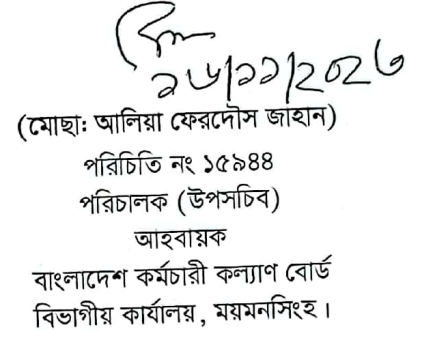 ২৬/১১/২০২৬
(মোছাঃ আলিয়া ফেরদৌস জাহান)
পরিচিতি নং ১৫৯৪৪
পরিচালক (উপসচিব)
আহবায়ক
বাংলাদেশ কর্মচারী কল্যাণ বোর্ড
বিভাগীয় কার্যালয়, ময়মনসিংহ।